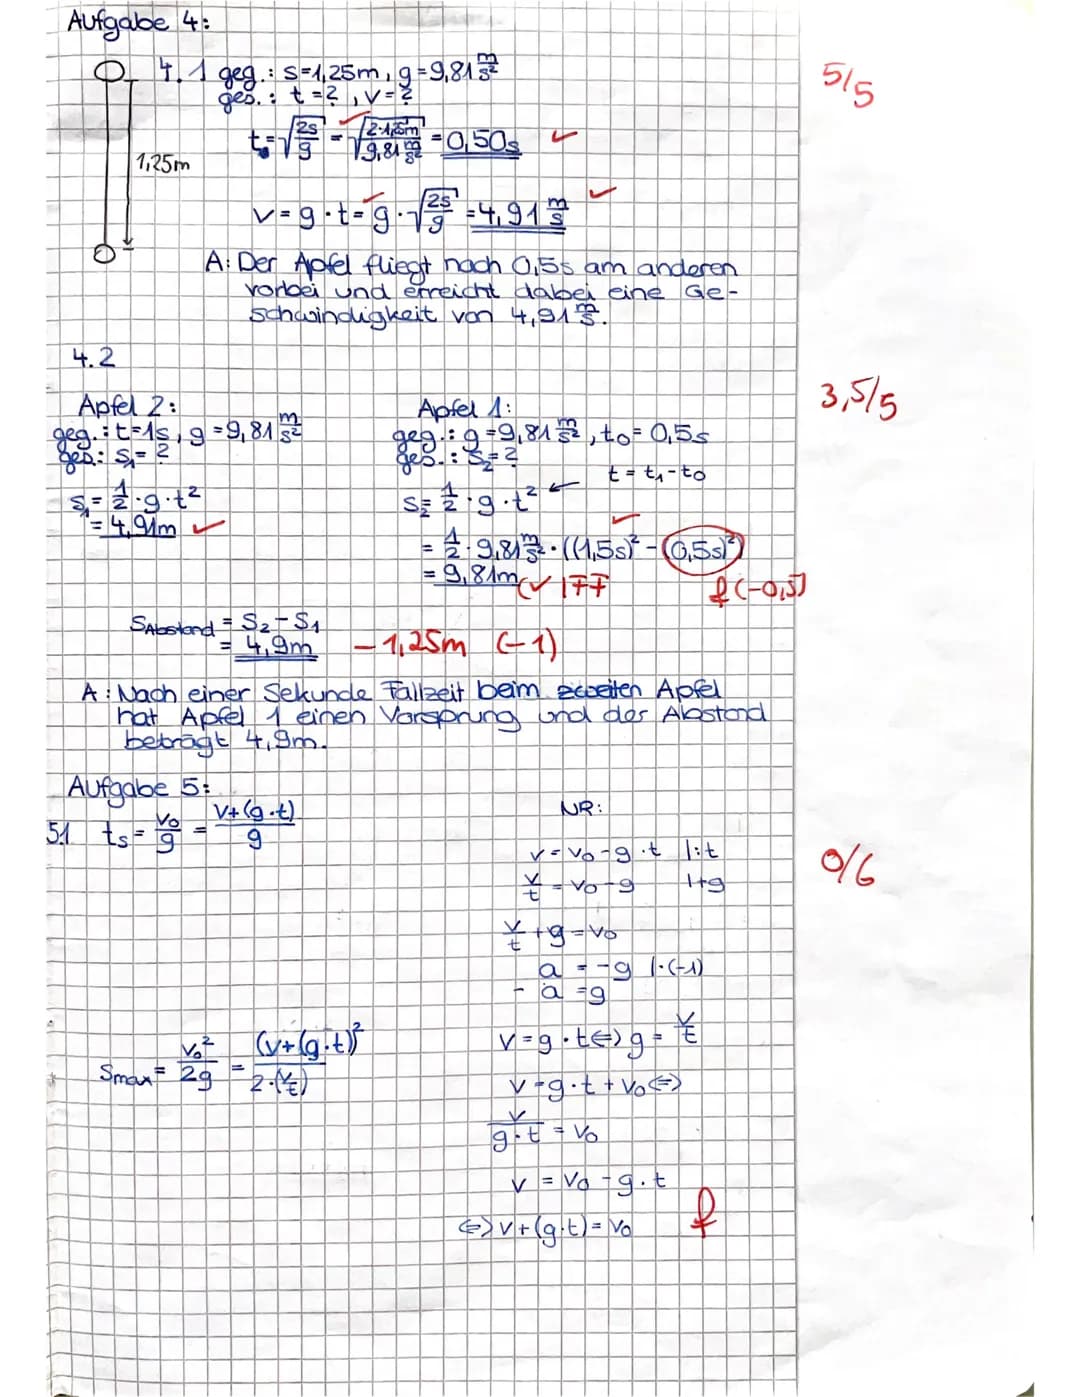 Aufgabe 4:
4.1 geg.: s=1,25m, g=9,81 m/s²
ges.: t=?, v=?
5/5
t=√(2s/g) = √(2·1,25m/9,81 m/s²) = 0,50s
1,25m
v = g · t = g · √(2s/g) = 4,91 m/s
A: Der Apfel fliegt nach 0,5s am anderen
vorbei und erreicht dabei eine Ge-
schwindigkeit von 4,91 m/s.
4.2
3,5/5
Apfel 2:
geg.: t=1s, g=9,81 m/s²
ges.: s₁=?
s₁= 1/2 · g · t²
= 4,91m
Apfel 1:
geg.: g=9,81 m/s², t₀= 0,5s
ges.: s₂=?
t = t₁-t₀
s₂= 1/2 · g · t² ←
= 1/2 · 9,81 m/s² · ((1,5s)² - (0,5s)²)
= 9,81m (✓) FF
f (-0,5)
SAbstand = S₂-S₁
= 4,9m - 1,25m (-1)
A: Nach einer Sekunde Fallzeit beim zweiten Apfel
hat Apfel 1 einen Vorsprung und der Abstand
beträgt 4,9m.
Aufgabe 5:
5.1 ts = v₀/g = v+(g·t)/g
0/6
NR:
v = v₀-g·t |:t
v/t = v₀-g |+g
v/t +g = v₀
a = -g |·(-1)
- a = g
v = g · t ⇔ g = v/t
Smax = v₀²/2g = (v+(g·t))²/2·(v/t)
v = g·t + v₀ ⇔
v/g·t = v₀
v = v₀ - g·t
⇔ v+(g·t) = v₀
f